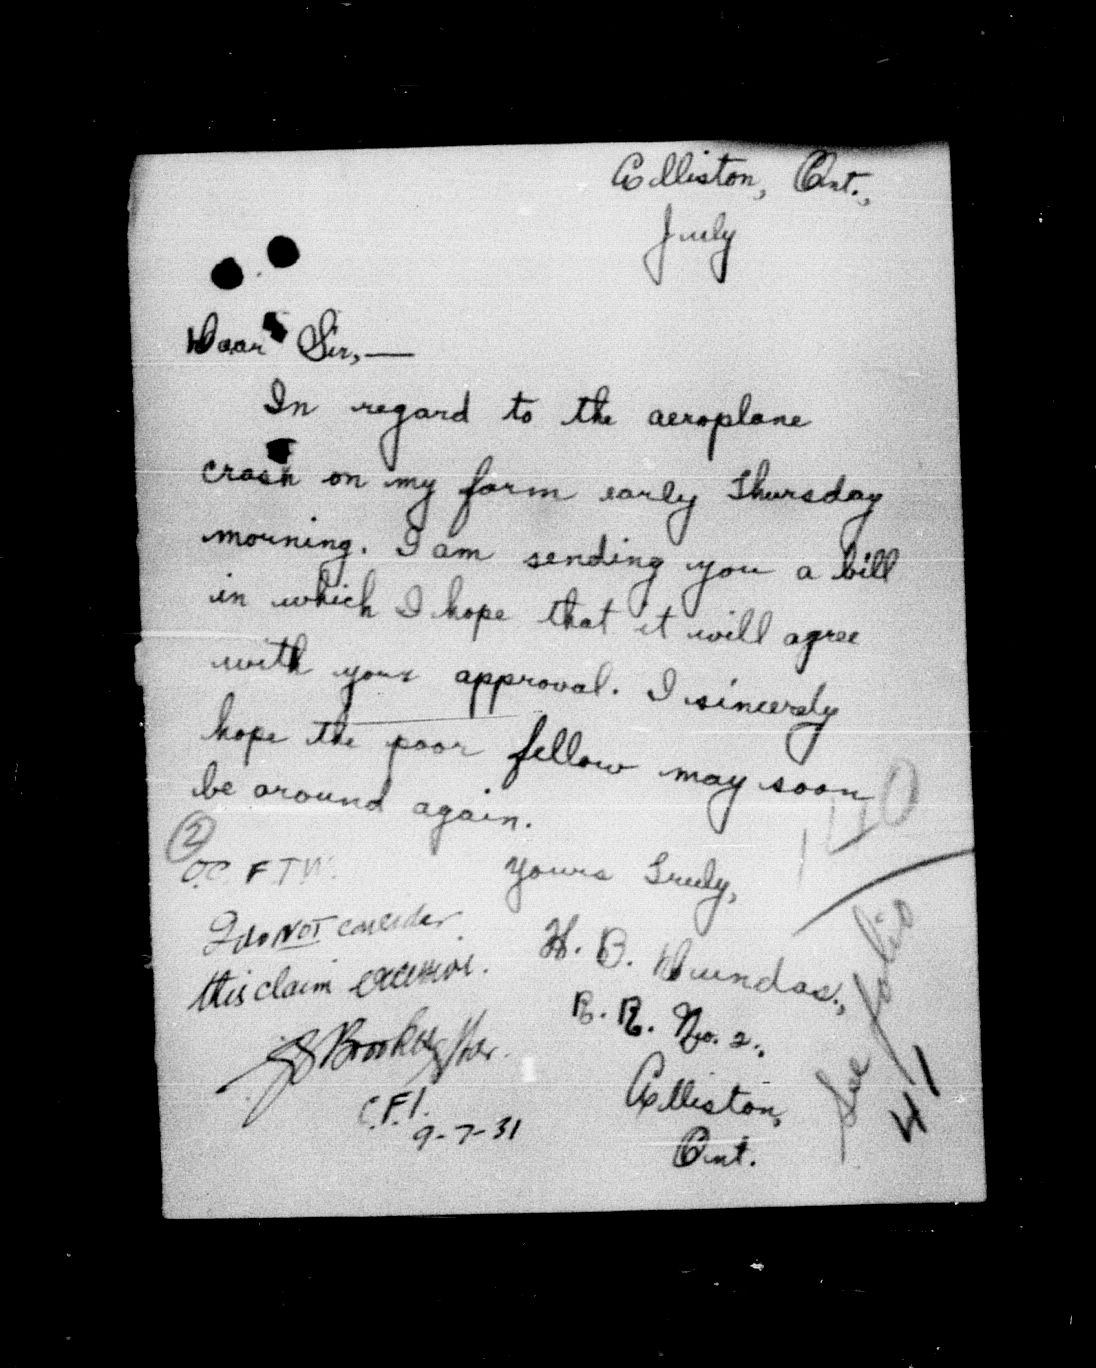 Alliston, Ont.,
July
Dear Sir,—
In regard to the aeroplane
crash on my farm early Thursday
morning. I am sending you a bill
in which I hope that it will agree
with your approval. I sincerely
hope the poor fellow may soon
be around again.
Yours Truly,
H. B. Dundas.,
R. R. No. 2.,
Alliston,
Ont.
2
O.C. F.T.W.
I do NOT consider
this claim excessive.
C.F.I.
9-7-31
140
See folio
41